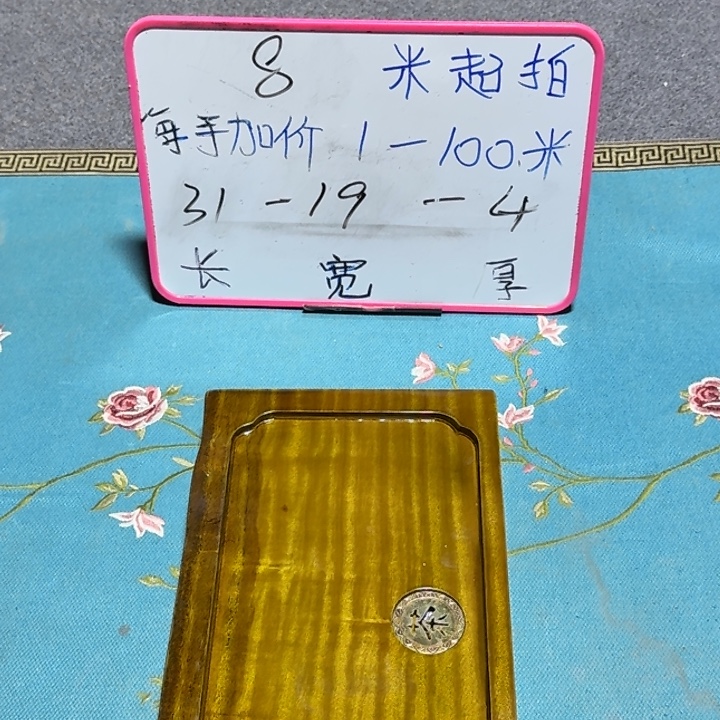 8 米起拍
每手加价1-100.米
31-19-4
长 宽 厚
茶